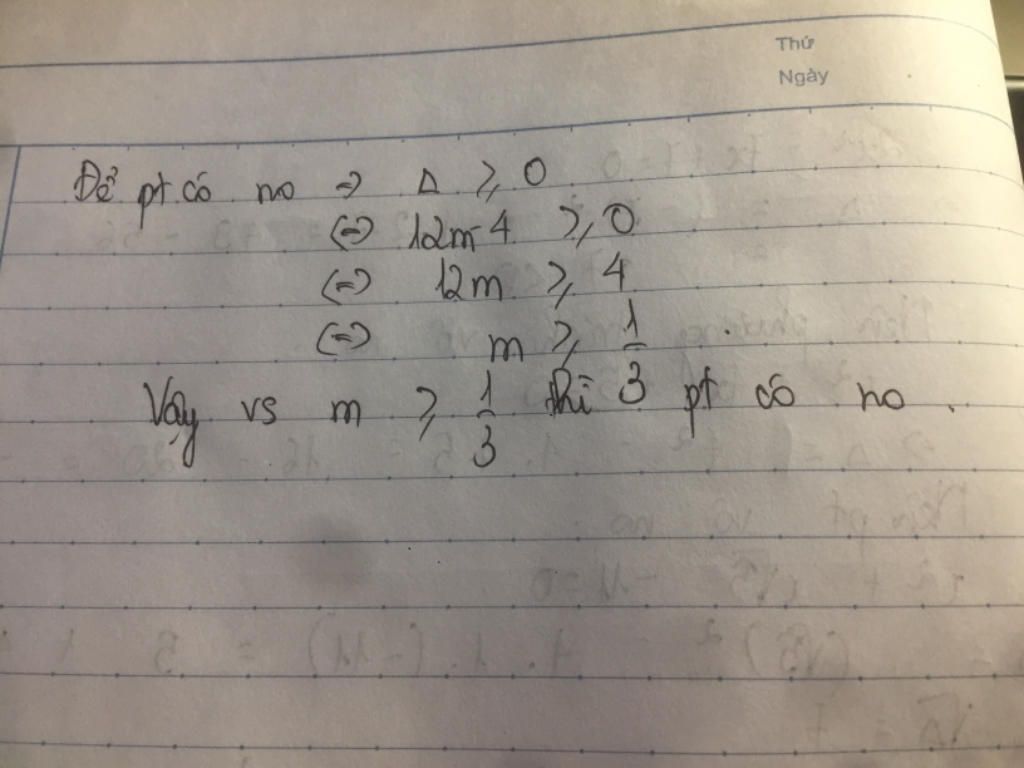 Thứ
Ngày
Để pt có no => Δ ≥ 0
(=) 12m-4 ≥ 0
(=) 12m ≥ 4
(=) m ≥ 1/3
Vậy vs m ≥ 1/3 thì pt có no.